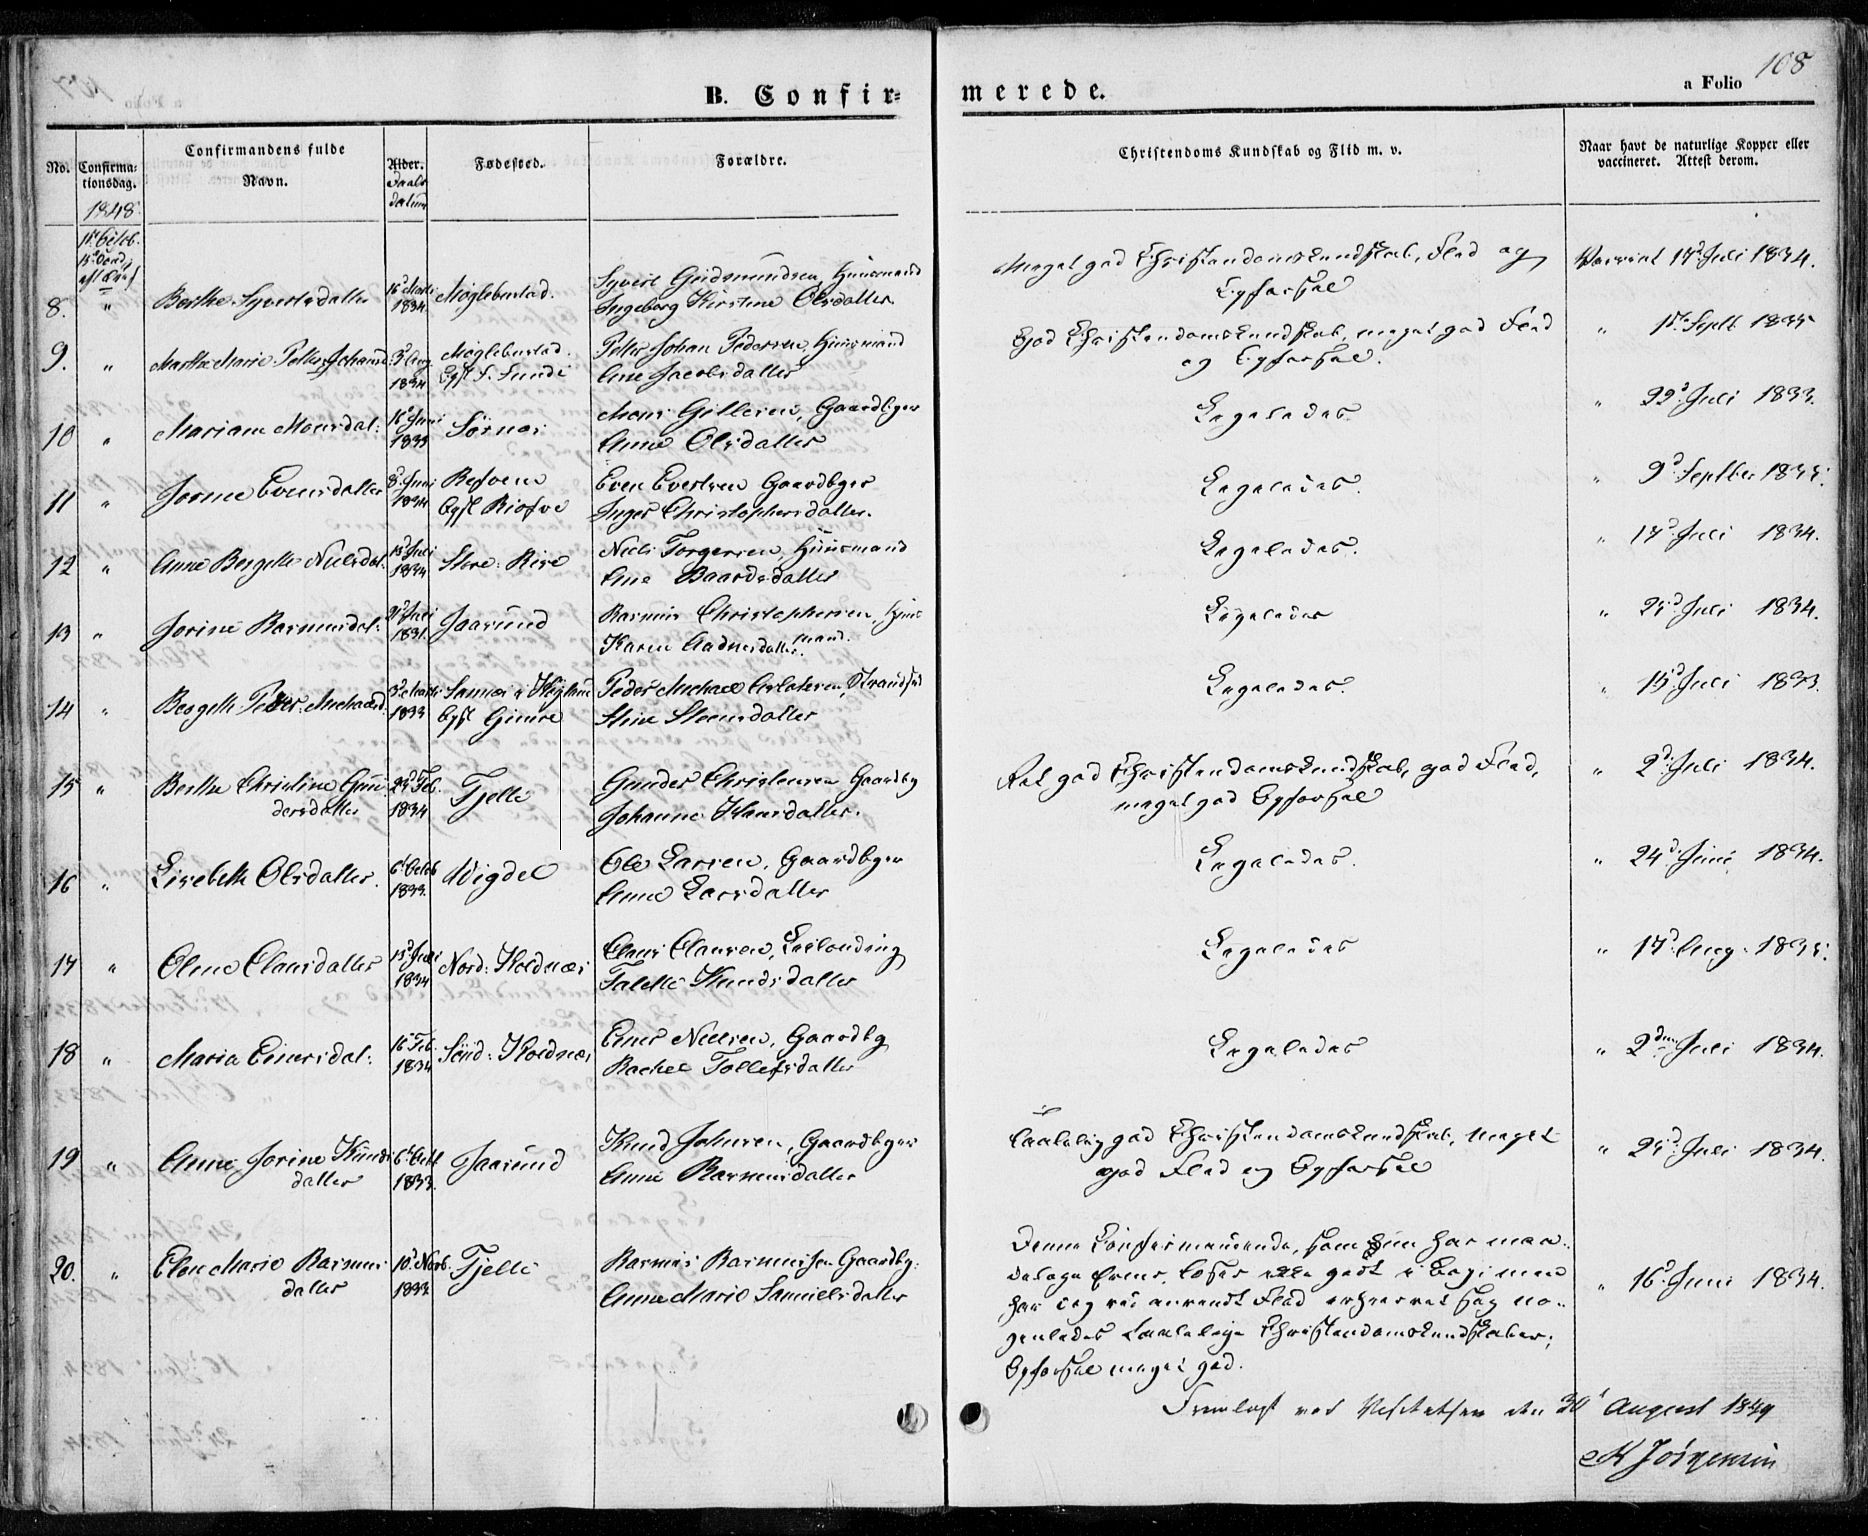 108
B. Confir= merede.
a Folio
No.
Confirma=
tionsdag.
1848
Confirmandens fulde
Navn.
Alder.
Daabs
datum
Fødested.
Forældre.
Christendoms Kundskab og Flid m. v.
Naar havt de naturlige Kopper eller
vaccineret. Attest derom.
8. " Berthe Syvertsdatter 1834. Møglebustad.
Syvert Gudmundsen, Huusmand
Ingeborg Kirstine Olsdatter
Meget god Christendomskundskab, Flid og
Opførsel
Vaccinet 17d Juli 1834.
9. " Marthe Marie Petter Johansd. 1834
Møglebustad.
Petter Johan Pedersen, Huusmand
Ane Jacobsdatter
God Christendomskundskab, meget god Flid
og Opførsel.
" Septb 1835
10 " Mariane Monsdat: 1833 Sörnæs
Mons Gittesen, Gaardbger
Anne Olsdatter
Ligeledes.
" 22d Juli 1833.
11 " Evensdatter 1834
Even Evertsen Gaardbger
Inger Christophersdatter.
Ligeledes.
" 9d Septber 1835.
12 " Anne Bergette Nielsdat. 1834 Store: Rise
Niels Torgersen, Huusmand
Ane Baardsdatter
Ligeledes.
" 17d Juli 1834.
13 " Jorine Rasmusdat: Jaasund
Rasmus Christophersen, Huus
mand.
Karen Aadnesdatter.
Ligeledes
" 25d Juli 1834.
14 " Bergette Peder Michaelsd. 1833
Peder Michael
Stine Steensdatter
Ligeledes.
" 15d Juli 1833.
15 " Berthe Christine Gun
dersdatter 1834 Tjelle
Gunder Christensen Gaardbg
Johanne Hansdatter.
Ret god Christendomskundskab, god Flid,
meget god Opførsel
" 2d Juli 1834.
16 " Lisebeth Olsdatter. 1833. Wigdel
Ole Larsen, Gaardbger
Anne Larsdatter
Ligeledes.
" 24d Juni 1834.
17 " Oline Clausdatter 1834 Nord: Koldnæs
Claus Clausen, Leilænding
Talette Knudsdatter
Ligeledes
" 17d Aug. 1835.
18 " Maria Einersdat: 16 Feb. 1834 Sönd: Koldnæs
Einer Nielsen, Gaardbg
Rachel Tollefsdatter
Ligeledes
" 2den Juli 1834.
19 " Anne Jorine Knuds
datter 1833. Jaasund
Knud Johnsen, Gaardbger
Anne Rasmusdatter
Taalelig god Christendomskundskab, meget
god Flid og Opførsel
" 25d Juli 1834.
20. " Elen Marie Rasmus
datter 10d Novb. 1833. Tjelle
Rasmus Rasmusen Gaardbg.
Anne Marie Samuelsdatter
Denne Confirmanende, som hun har man
læser ikke godt i Bog; men
har dog ved anvendt Flid erhvervet sig no=
genledes taalelige Christendomskundskaber;
Opførsel meget god.
" 16d Juni 1834.
Fremlagt ved Visitatsen den 30t August 1849
Jörgensen